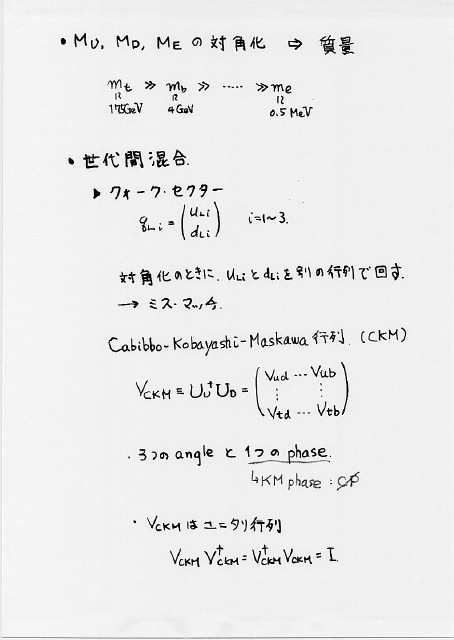 • MU, MD, ME の対角化 ⇒ 質量
mt ≫ mb ≫ ····· ≫ me
≀≀ ≀≀ ≀≀
175GeV 4GeV 0.5 MeV
• 世代間混合.
▶ クォーク・セクター
qLi = (uLi dLi) i=1~3.
対角化のときに、uLiとdLiを別の行列で回す.
→ ミス・マッチ.
Cabibbo-Kobayashi-Maskawa 行列. (CKM)
VCKM ≡ UU†UD = (Vud ··· Vub ⋮ ⋮ Vtd ··· Vtb)
· 3つの angle と 1つの phase.
↳ KM phase : CP
· VCKM は ユニタリ行列
VCKM V†CKM = V†CKM VCKM = I.